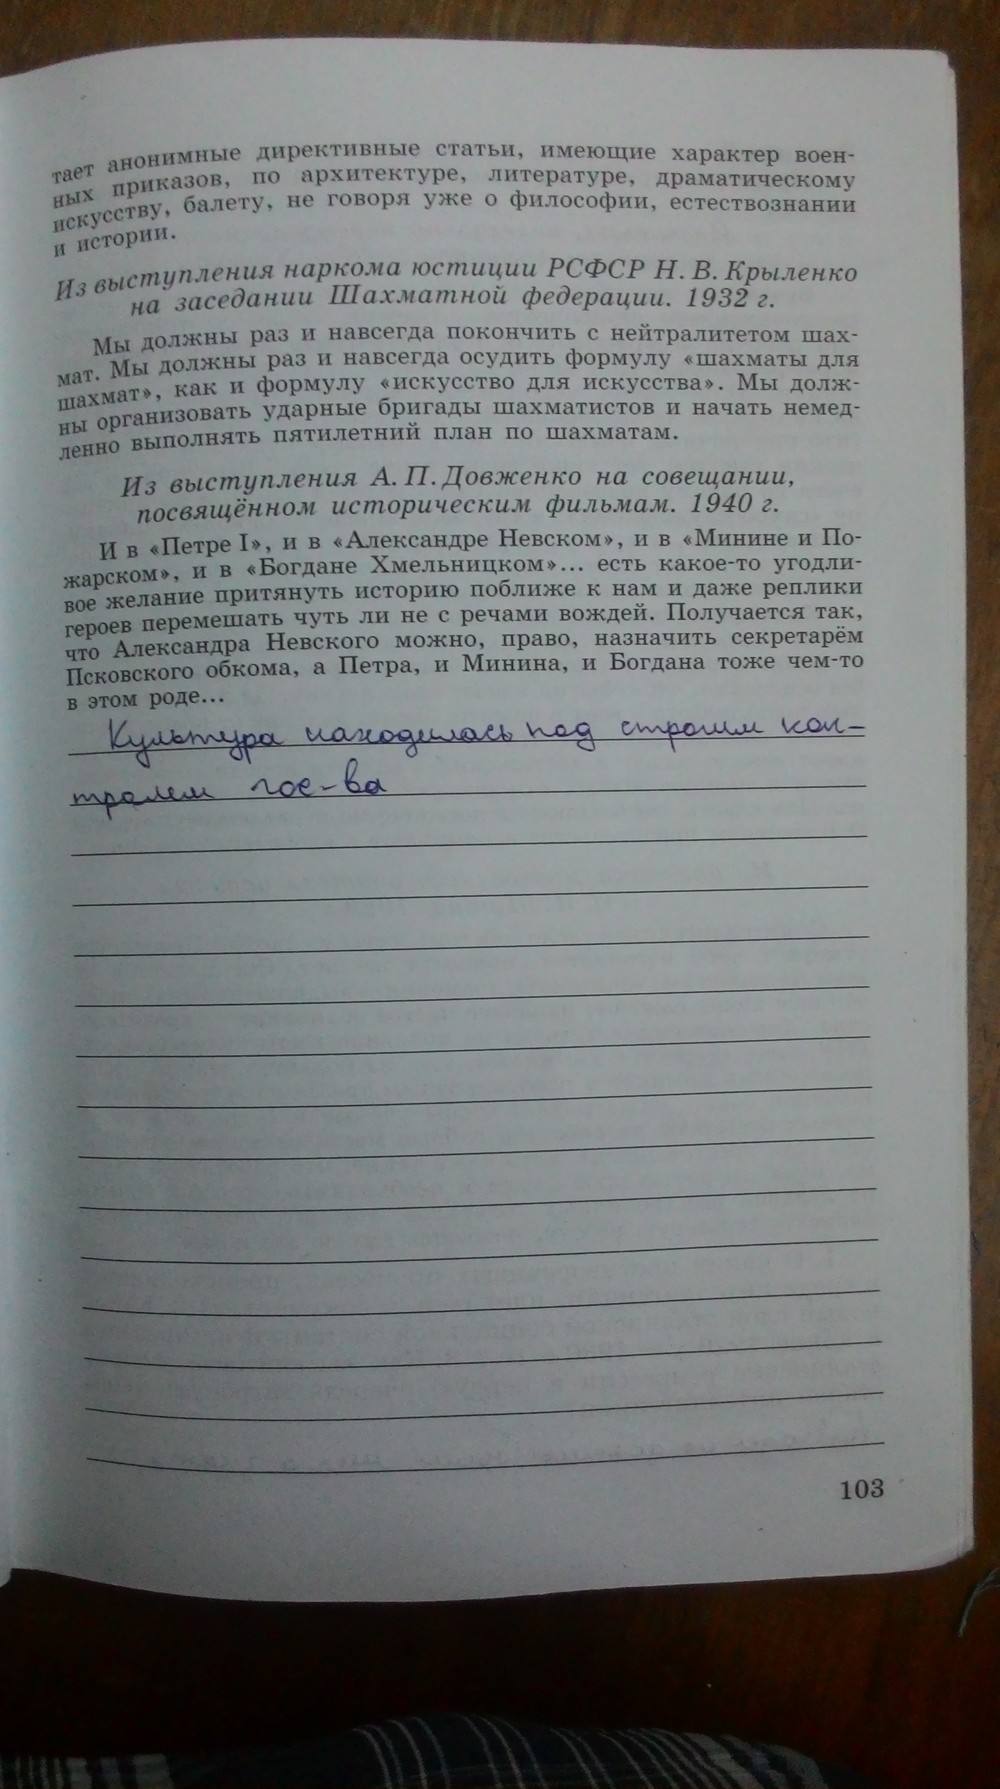 тает анонимные директивные статьи, имеющие характер воен-
ных приказов, по архитектуре, литературе, драматическому
искусству, балету, не говоря уже о философии, естествознании
и истории.
Из выступления наркома юстиции РСФСР Н. В. Крыленко
на заседании Шахматной федерации. 1932 г.
Мы должны раз и навсегда покончить с нейтралитетом шах-
мат. Мы должны раз и навсегда осудить формулу «шахматы для
шахмат», как и формулу «искусство для искусства». Мы долж-
ны организовать ударные бригады шахматистов и начать немед-
ленно выполнять пятилетний план по шахматам.
Из выступления А. П. Довженко на совещании,
посвящённом историческим фильмам. 1940 г.
И в «Петре I», и в «Александре Невском», и в «Минине и По-
жарском», и в «Богдане Хмельницком»... есть какое-то угодли-
вое желание притянуть историю поближе к нам и даже реплики
героев перемешать чуть ли не с речами вождей. Получается так,
что Александра Невского можно, право, назначить секретарём
Псковского обкома, а Петра, и Минина, и Богдана тоже чем-то
в этом роде...
Культура находилась под строгим кон-
тролем гос-ва
103